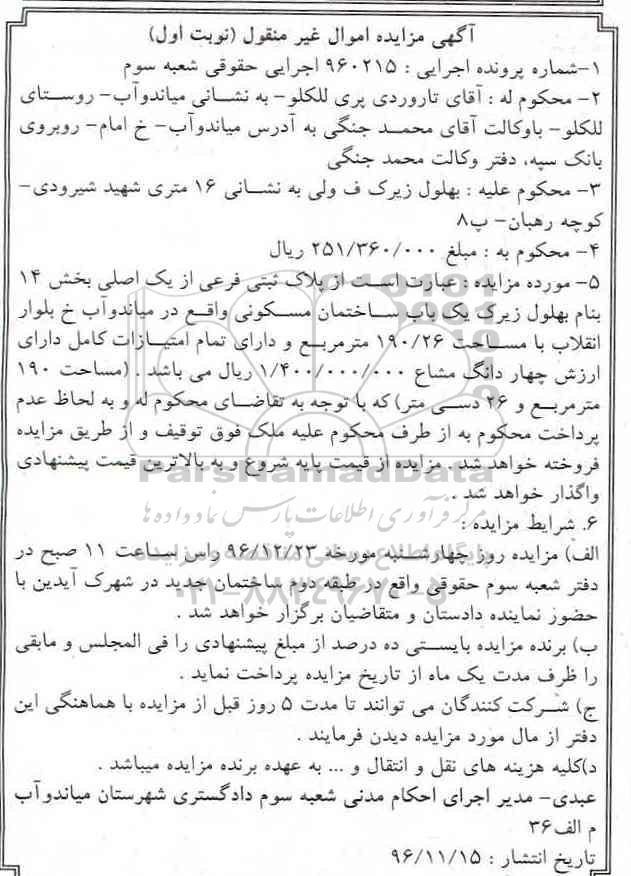 آگهی مزایده اموال غیر منقول (نوبت اول)
۱-شماره پرونده اجرایی : ۹۶۰۲۱۵ اجرایی حقوقی شعبه سوم
۲- محکوم له : آقای تاروردی پری للکلو- به نشانی میاندوآب- روستای
للکلو- باوکالت آقای محمد جنگی به آدرس میاندوآب- خ امام- روبروی
بانک سپه، دفتر وکالت محمد جنگی
۳- محکوم علیه : بهلول زیرک ف ولی به نشانی ۱۶ متری شهید شیرودی-
کوچه رهبان- پ۸
۴- محکوم به : مبلغ ۲۵۱/۳۶۰/۰۰۰ ریال
۵- مورده مزایده : عبارت است از پلاک ثبتی فرعی از یک اصلی بخش ۱۴
بنام بهلول زیرک یک باب ساختمان مسکونی واقع در میاندوآب خ بلوار
انقلاب با مساحت ۱۹۰/۲۶ مترمربع و دارای تمام امتیازات کامل دارای
ارزش چهار دانگ مشاع ۱/۴۰۰/۰۰۰/۰۰۰ ریال می باشد . (مساحت ۱۹۰
مترمربع و ۲۶ دسی متر) که با توجه به تقاضای محکوم له و به لحاظ عدم
پرداخت محکوم به از طرف محکوم علیه ملک فوق توقیف و از طریق مزایده
فروخته خواهد شد . مزایده از قیمت پایه شروع و به بالاترین قیمت پیشنهادی
واگذار خواهد شد .
ParsNamadData
مرکز فرآوری اطلاعات پارس نماد داده ها
۶. شرایط مزایده :
الف) مزایده روز چهارشنبه مورخه ۹۶/۱۲/۲۳ راس ساعت ۱۱ صبح در
دفتر شعبه سوم حقوقی واقع در طبقه دوم ساختمان جدید در شهرک آیدین با
حضور نماینده دادستان و متقاضیان برگزار خواهد شد .
ب) برنده مزایده بایستی ده درصد از مبلغ پیشنهادی را فی المجلس و مابقی
را ظرف مدت یک ماه از تاریخ مزایده پرداخت نماید .
ج) شرکت کنندگان می توانند تا مدت ۵ روز قبل از مزایده با هماهنگی این
دفتر از مال مورد مزایده دیدن فرمایند .
د)کلیه هزینه های نقل و انتقال و ... به عهده برنده مزایده میباشد .
عبدی- مدیر اجرای احکام مدنی شعبه سوم دادگستری شهرستان میاندوآب
م الف۳۶
تاریخ انتشار : ۹۶/۱۱/۱۵